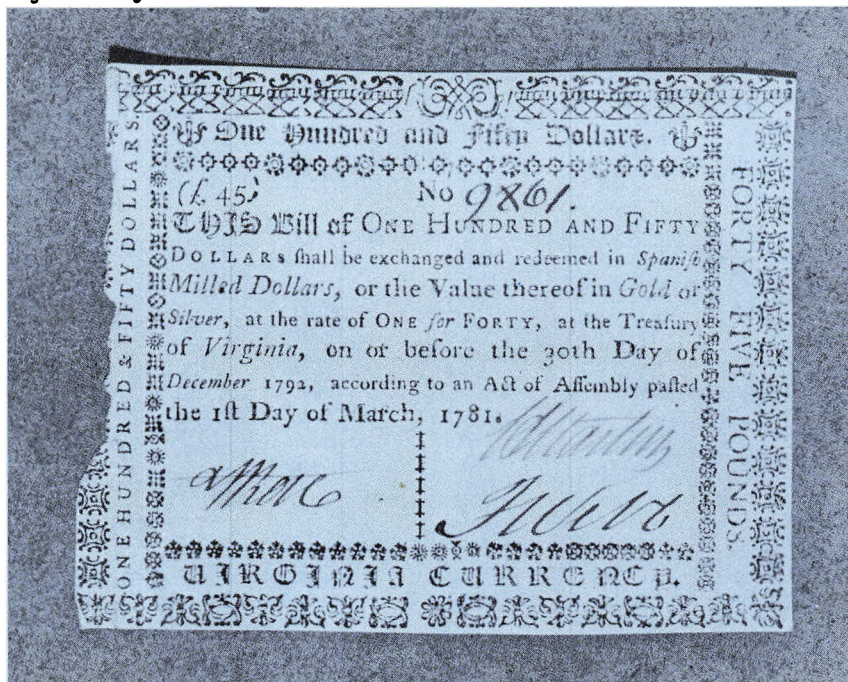 One Hundred and Fifty Dollars.
(£. 45)
No 9861.
THIS Bill of ONE HUNDRED AND FIFTY
DOLLARS ſhall be exchanged and redeemed in Spaniſh
Milled Dollars, or the Value thereof in Gold or
Silver, at the rate of ONE for FORTY, at the Treaſury
of Virginia, on or before the 30th Day of
December 1792, according to an Act of Aſſembly paſſed
the 1ſt Day of March, 1781.
VIRGINIA CURRENCY.
ONE HUNDRED & FIFTY DOLLARS.
FORTY FIVE POUNDS.